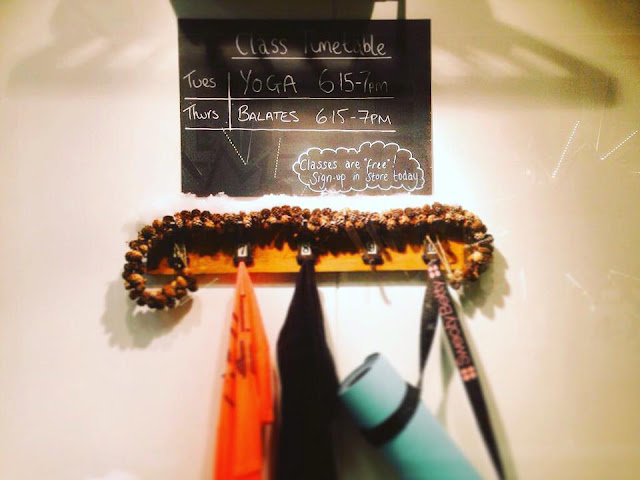 Class Timetable
Tues YOGA 6.15-7PM
Thurs BALATES 6.15-7PM
Classes are "free"!
Sign-up in store today
SWEATY BETTY